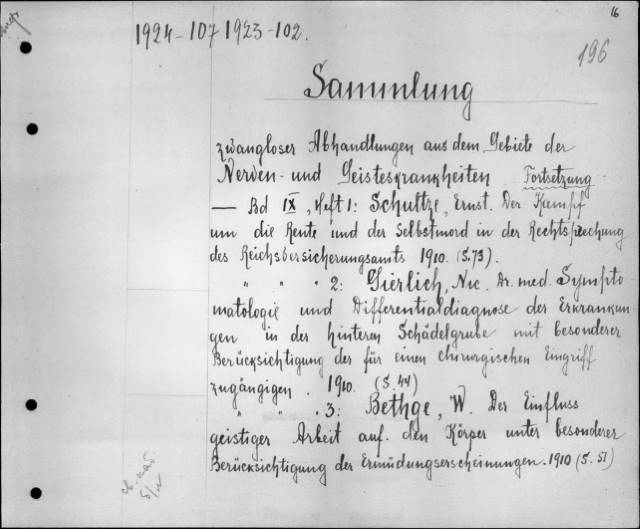 16
1924-107 1923-102.
196
Sammlung
zwangloser Abhandlungen aus dem Gebiete der
Nerven- und Geisteskrankheiten Fortsetzung
— Bd IX, Heft 1: Schultze, Ernst. Der Kampf
um die Rente und der Selbstmord in der Rechtsprechung
des Reichsversicherungsamts 1910. (S. 73).
" " " 2: Gierlich, Nic. Dr. med. Sympto
matologie und Differentialdiagnose der Erkrankun
gen in der hinteren Schädelgrube mit besonderer
Berücksichtigung der für einen chirurgischen Eingriff
zugängigen. 1910. (S. 44)
" " " 3: Bethge, W. Der Einfluss
geistiger Arbeit auf den Körper unter besonderer
Berücksichtigung der Ermüdungserscheinungen. 1910 (S. 51)